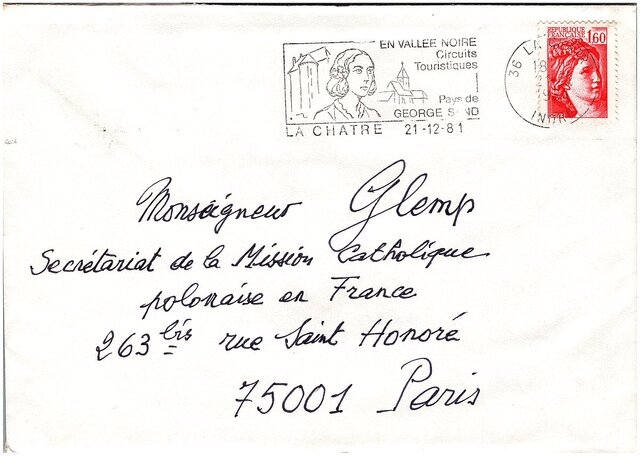 EN VALLEE NOIRE
Circuits
Touristiques
Pays de
GEORGE S ND
LA CHATRE 21-12-81
REPUBLIQUE
FRANÇAISE 1,60
36 LA
18
INDR
Monseigneur Glemp
Secrétariat de la Mission Catholique
polonaise en France
263 bis rue Saint Honoré
75001 Paris